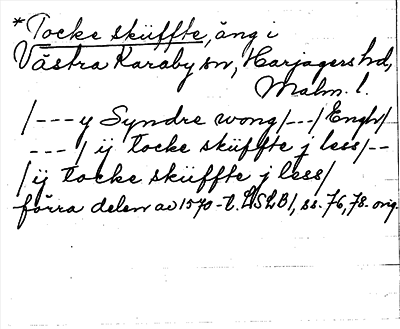 *Tocke sküffte, äng i
Västra Karaby sn, Harjagers hd,
Malm. l.
/---y Syndre wong/---/Engh/
---/ ij tocke sküffte j less/--
/ij tocke sküffte j less/
förra delen av 1570-t. LSLB/, ss. 76, 78. orig.